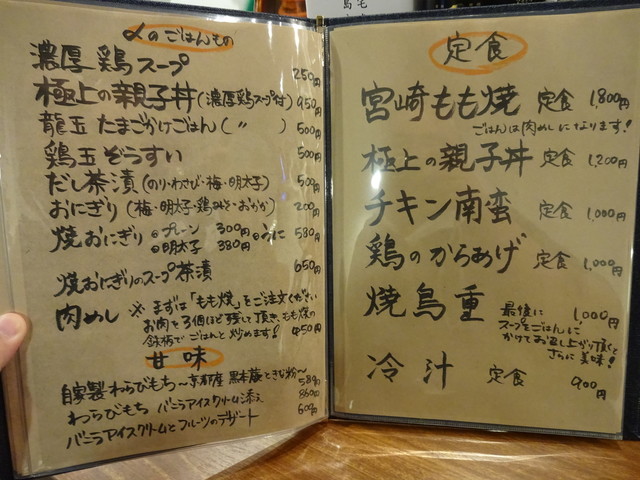 〆のごはんもの
濃厚鶏スープ 250円
極上の親子丼(濃厚鶏スープ付) 950円
龍玉 たまごかけごはん( 〃 ) 500円
鶏玉ぞうすい 500円
だし茶漬(のり・わさび・梅・明太子) 500円
おにぎり(梅・明太子・鶏みそ・おかか) 200円
焼おにぎり ◎プレーン 300円 ◎うに 580円
◎明太子 380円
焼おにぎりのスープ茶漬 650円
肉めし ※まずは「もも焼」をご注文ください
お肉を3個ほど残して頂き、もも焼の
鉄板でごはんと炒めます! 450円
甘味
自家製わらびもち〜京都産 黒本蕨ときな粉〜 580円
わらびもち バニラアイスクリーム添え
バニラアイスクリームとフルーツのデザート 600円
定食
宮崎もも焼 定食 1,800円
ごはんは肉めしになります!
極上の親子丼 定食 1,200円
チキン南蛮 定食 1,000円
鶏のからあげ 定食 1,000円
焼鳥重 1,000円
最後に
スープをごはんに
かけてお召し上がり頂くと
さらに美味!
冷汁 定食 900円